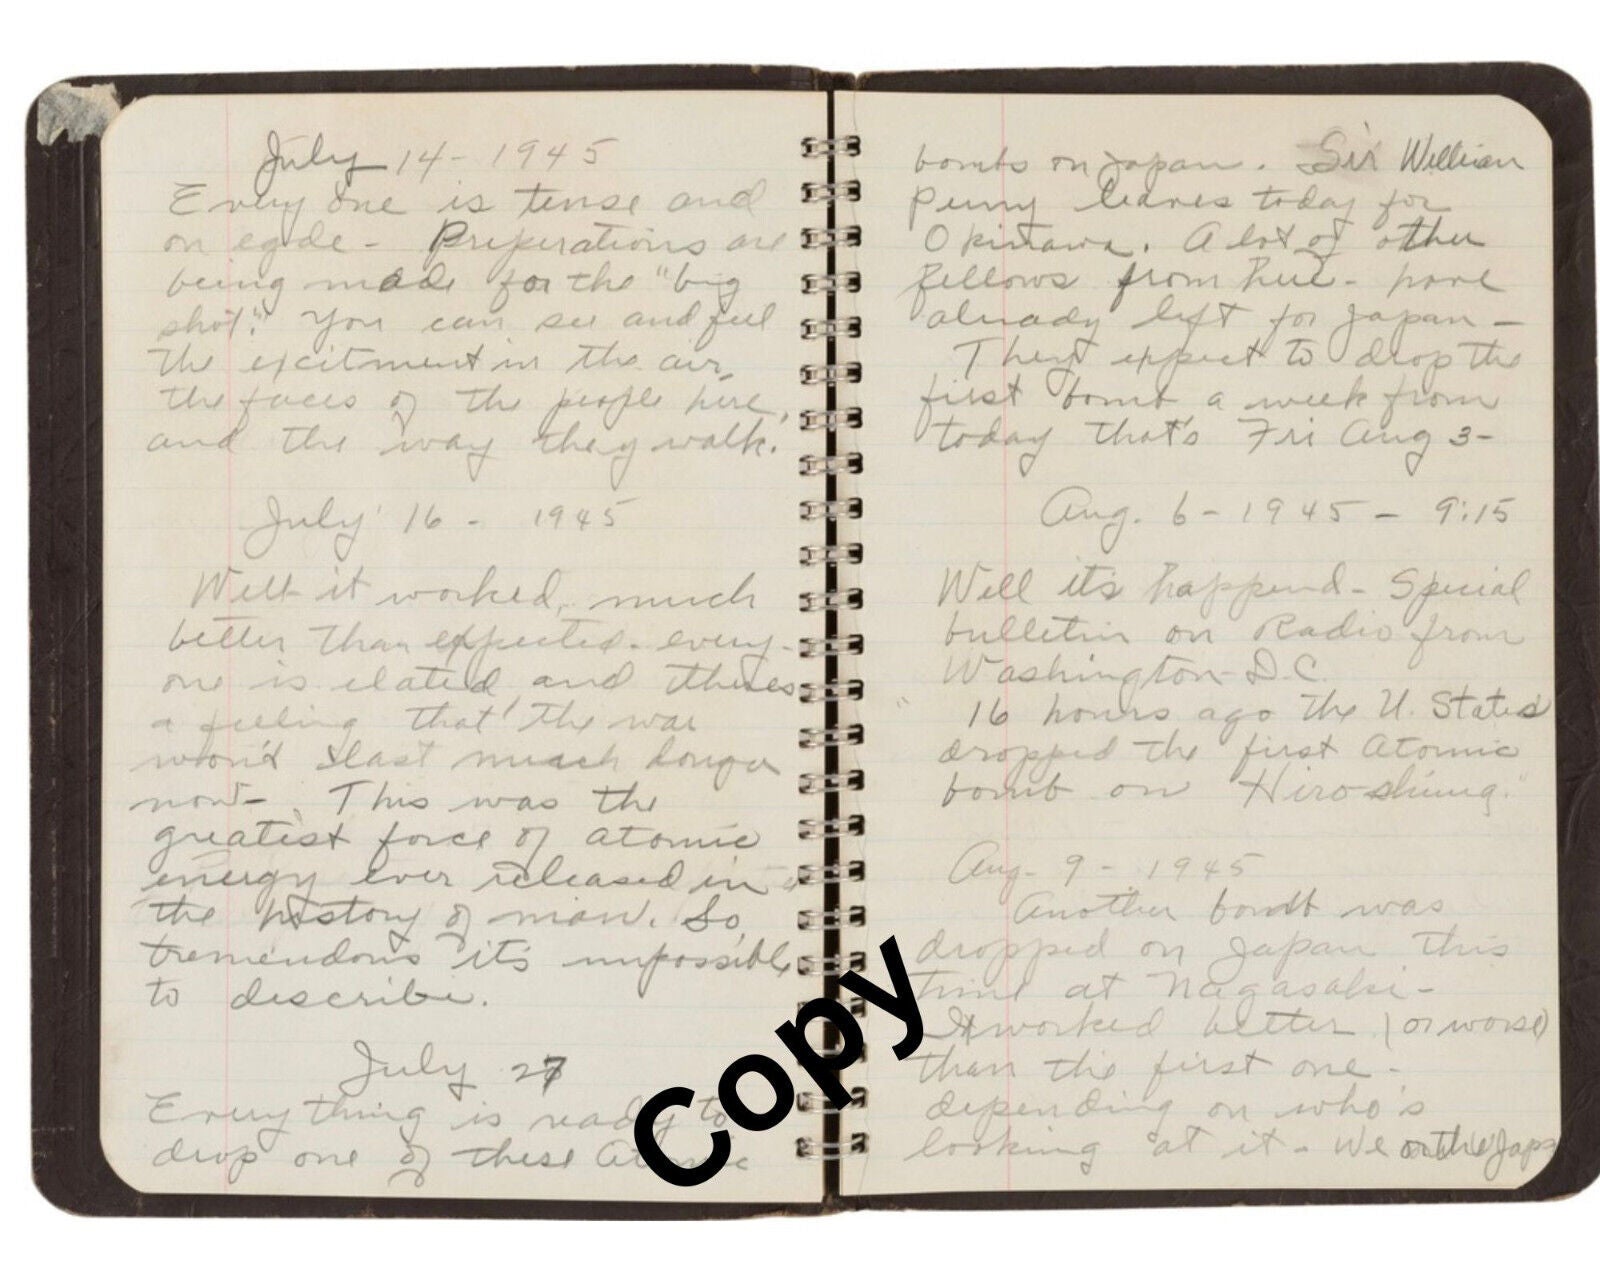 July 14 - 1945
Every one is tense and
on egde - Preperations are
being made for the "big
shot." You can see and feel
the excitment in the air,
the faces of the people here,
and the way they walk.
July 16 - 1945
Well it worked, much
better than expected - every-
one is elated and theres
a feeling that the war
won't last much longer
now - This was the
greatest force of atomic
energy ever released in
the history of man. So
tremendous it's impossible
to describe.
July 27
Everything is ready to
drop one of these Atomic
bombs on Japan. Sir William
Penny leaves today for
Okinawa. A lot of other
fellows from here - have
already left for Japan -
They expect to drop the
first bomb a week from
today that's Fri Aug 3 -
Aug. 6 - 1945 - 9:15
Well it's happend - Special
bulletin on Radio from
Washington D.C.
"16 hours ago the U. States
dropped the first Atomic
bomb on Hiroshima."
Aug. 9 - 1945
Another bomb was
dropped on Japan this
time at Nagasaki -
It worked better (or worse)
than the first one -
depending on who's
looking at it - We or the Japs
Copy